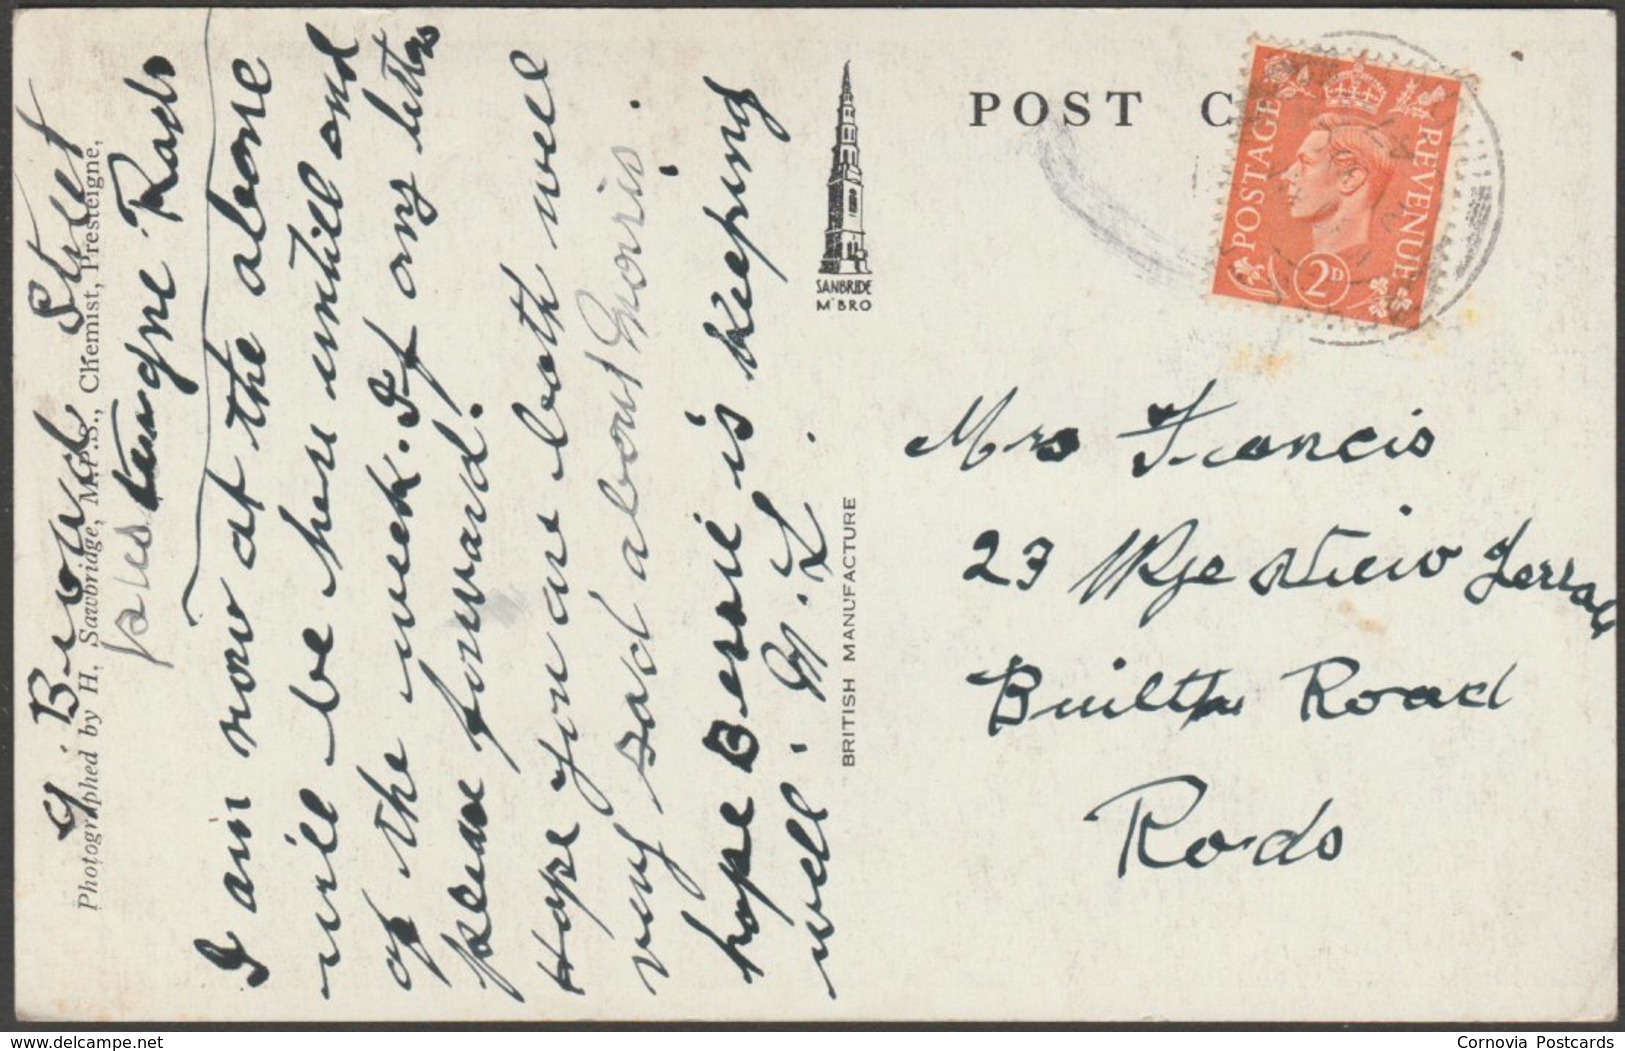 9. Broad Street
presteigne Rads
I am now at the aboone
will be here untill end
of the week. If any letters
please forward.
Hope you are both well
very sad about Morris.
hope Bessie is keeping
well. M. L.
Photographed by H. Sawbridge, M.P.S., Chemist, Presteigne,
SANBRIDE
M'BRO
BRITISH MANUFACTURE
POST C
POSTAGE
REVENUE
2D
Mrs Francis
23 Wye View Terrace
Builth Road
Rads
www.delcampe.net
Cornovia Postcards